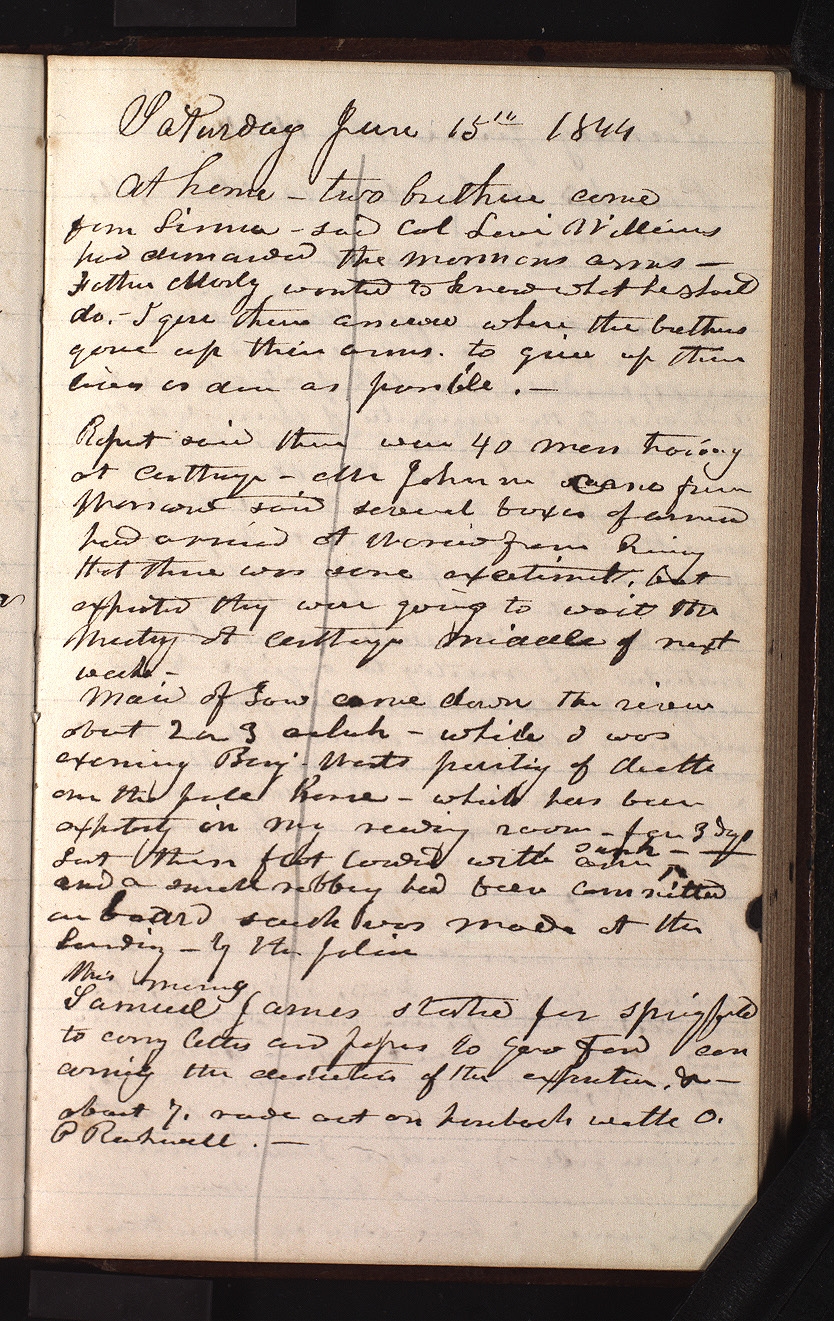 Saturday June 15th 1844
At home – two brethren come
from Lima – said Col Levi Williams
had demanded the mormons arms –
Father Morly wanted to know what he should
do. – I gave them answer when the brethren
gave up their arms. to give up their
lives as dear as possible . –
Report said there were 40 men traing
at Carthage – Mr John m from
Warsaw said several boxes of arms
had arrived at Warsaw from Quincy
that there was some excitement. but
expected they were going to wait the
Meeting at Carthage middle of next
week –
Maid of Iowa came down the river
about 2 or 3 oclock – while I was
examing Benj. Wests painting of death
on the pale horse – which has been
exhibitg in my reading room – for 3 days
sunk –
but then flat loaded with corn
and a small robbery had been committed
on board search was made at the
landing – by the police
this morning
Samuel James started for Springfield
to carry letters and papers to Gov Ford con
cerning the destruction of the expositor. &c –
about 7. rode out on horseback with O.
P Rockwell . –